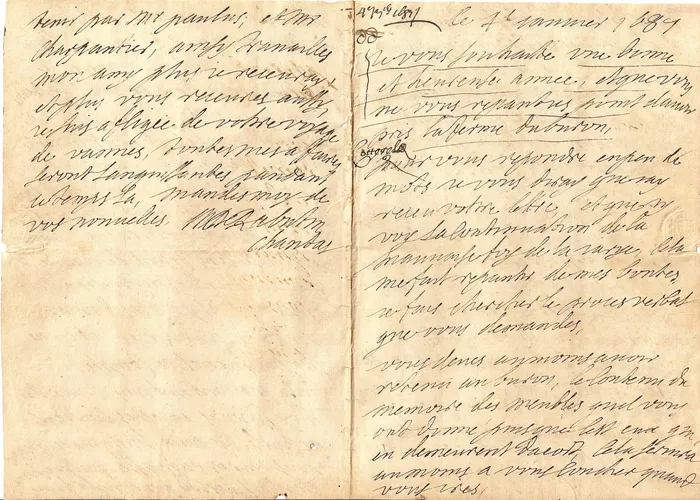 tenir par Mr paulus, et Mr
Charpantier, ainsy trauailles
mon amy plus ie receuray
et plus vous receures aussy
ie suis afligee de votre voyage
de vannes, toutes mes afaires
seront Languissantes pandant
ce temps La, mandes moy de
vos nouuelles M de Rabutin
Chantal
le 1 januier 1689
ie vous souhaitte vne bonne
et heureuse annee, et que vous
ne vous repanties point dauoir
pris la ferme du buron,
pour vous repondre en peu de
mots ie vous diray que iay
receu votre letre, et que iy
voy La Continuation de la
mauuaise foy de la Cela
me fait repantir de mes bontes,
ie fais chercher le proces verbal
que vous demandes,
vous deues au moins auoir
retenu au buron, le Contenu du
memoire des meubles quel vous
ont donne puisque cest eux qui
en demeurent dacord, Cela seruira
au moins a vous Coucher quand
vous ires,